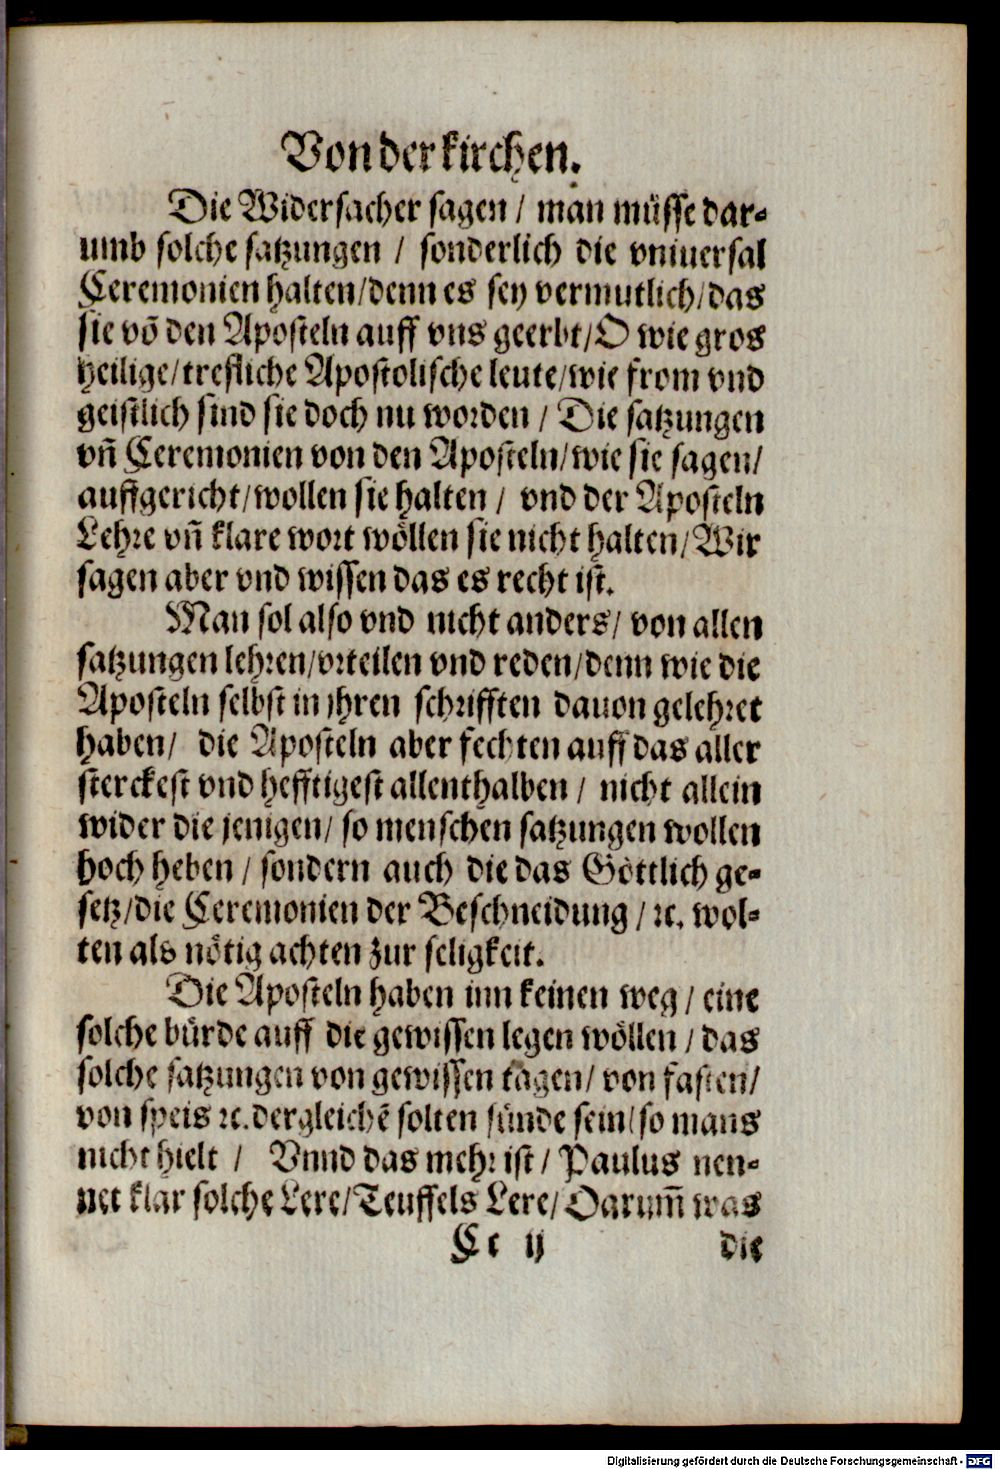 Von der kirchen.
Die Widersacher sagen / man müsse dar-
umb solche satzungen / sonderlich die vniuersal
Ceremonien halten/denn es sey vermutlich/das
sie võ den Aposteln auff vns geerbt/O wie gros
heilige/trefliche Apostolische leute/wie from vnd
geistlich sind sie doch nu worden / Die satzungen
vñ Ceremonien von den Aposteln/wie sie sagen/
auffgericht/wollen sie halten / vnd der Aposteln
Lehre vñ klare wort wöllen sie nicht halten/Wir
sagen aber vnd wissen das es recht ist.
Man sol also vnd nicht anders/ von allen
satzungen lehren/vrteilen vnd reden/denn wie die
Aposteln selbst in jhren schrifften dauon gelehret
haben/ die Aposteln aber fechten auff das aller
sterckest vnd hefftigest allenthalben / nicht allein
wider die jenigen/ so menschen satzungen wollen
hoch heben / sondern auch die das Göttlich ge-
setz/die Ceremonien der Beschneidung / ꝛc. wol-
ten als nötig achten zur seligkeit.
Die Aposteln haben inn keinen weg / eine
solche bürde auff die gewissen legen wöllen / das
solche satzungen von gewissen tagen/ von fasten/
von speis ꝛc. dergleichẽ solten sünde sein/so mans
nicht hielt / Vnnd das mehr ist / Paulus nen-
net klar solche Lere/Teuffels Lere/ Darumm̃ was
Cc ij die
Digitalisierung gefördert durch die Deutsche Forschungsgemeinschaft - DFG